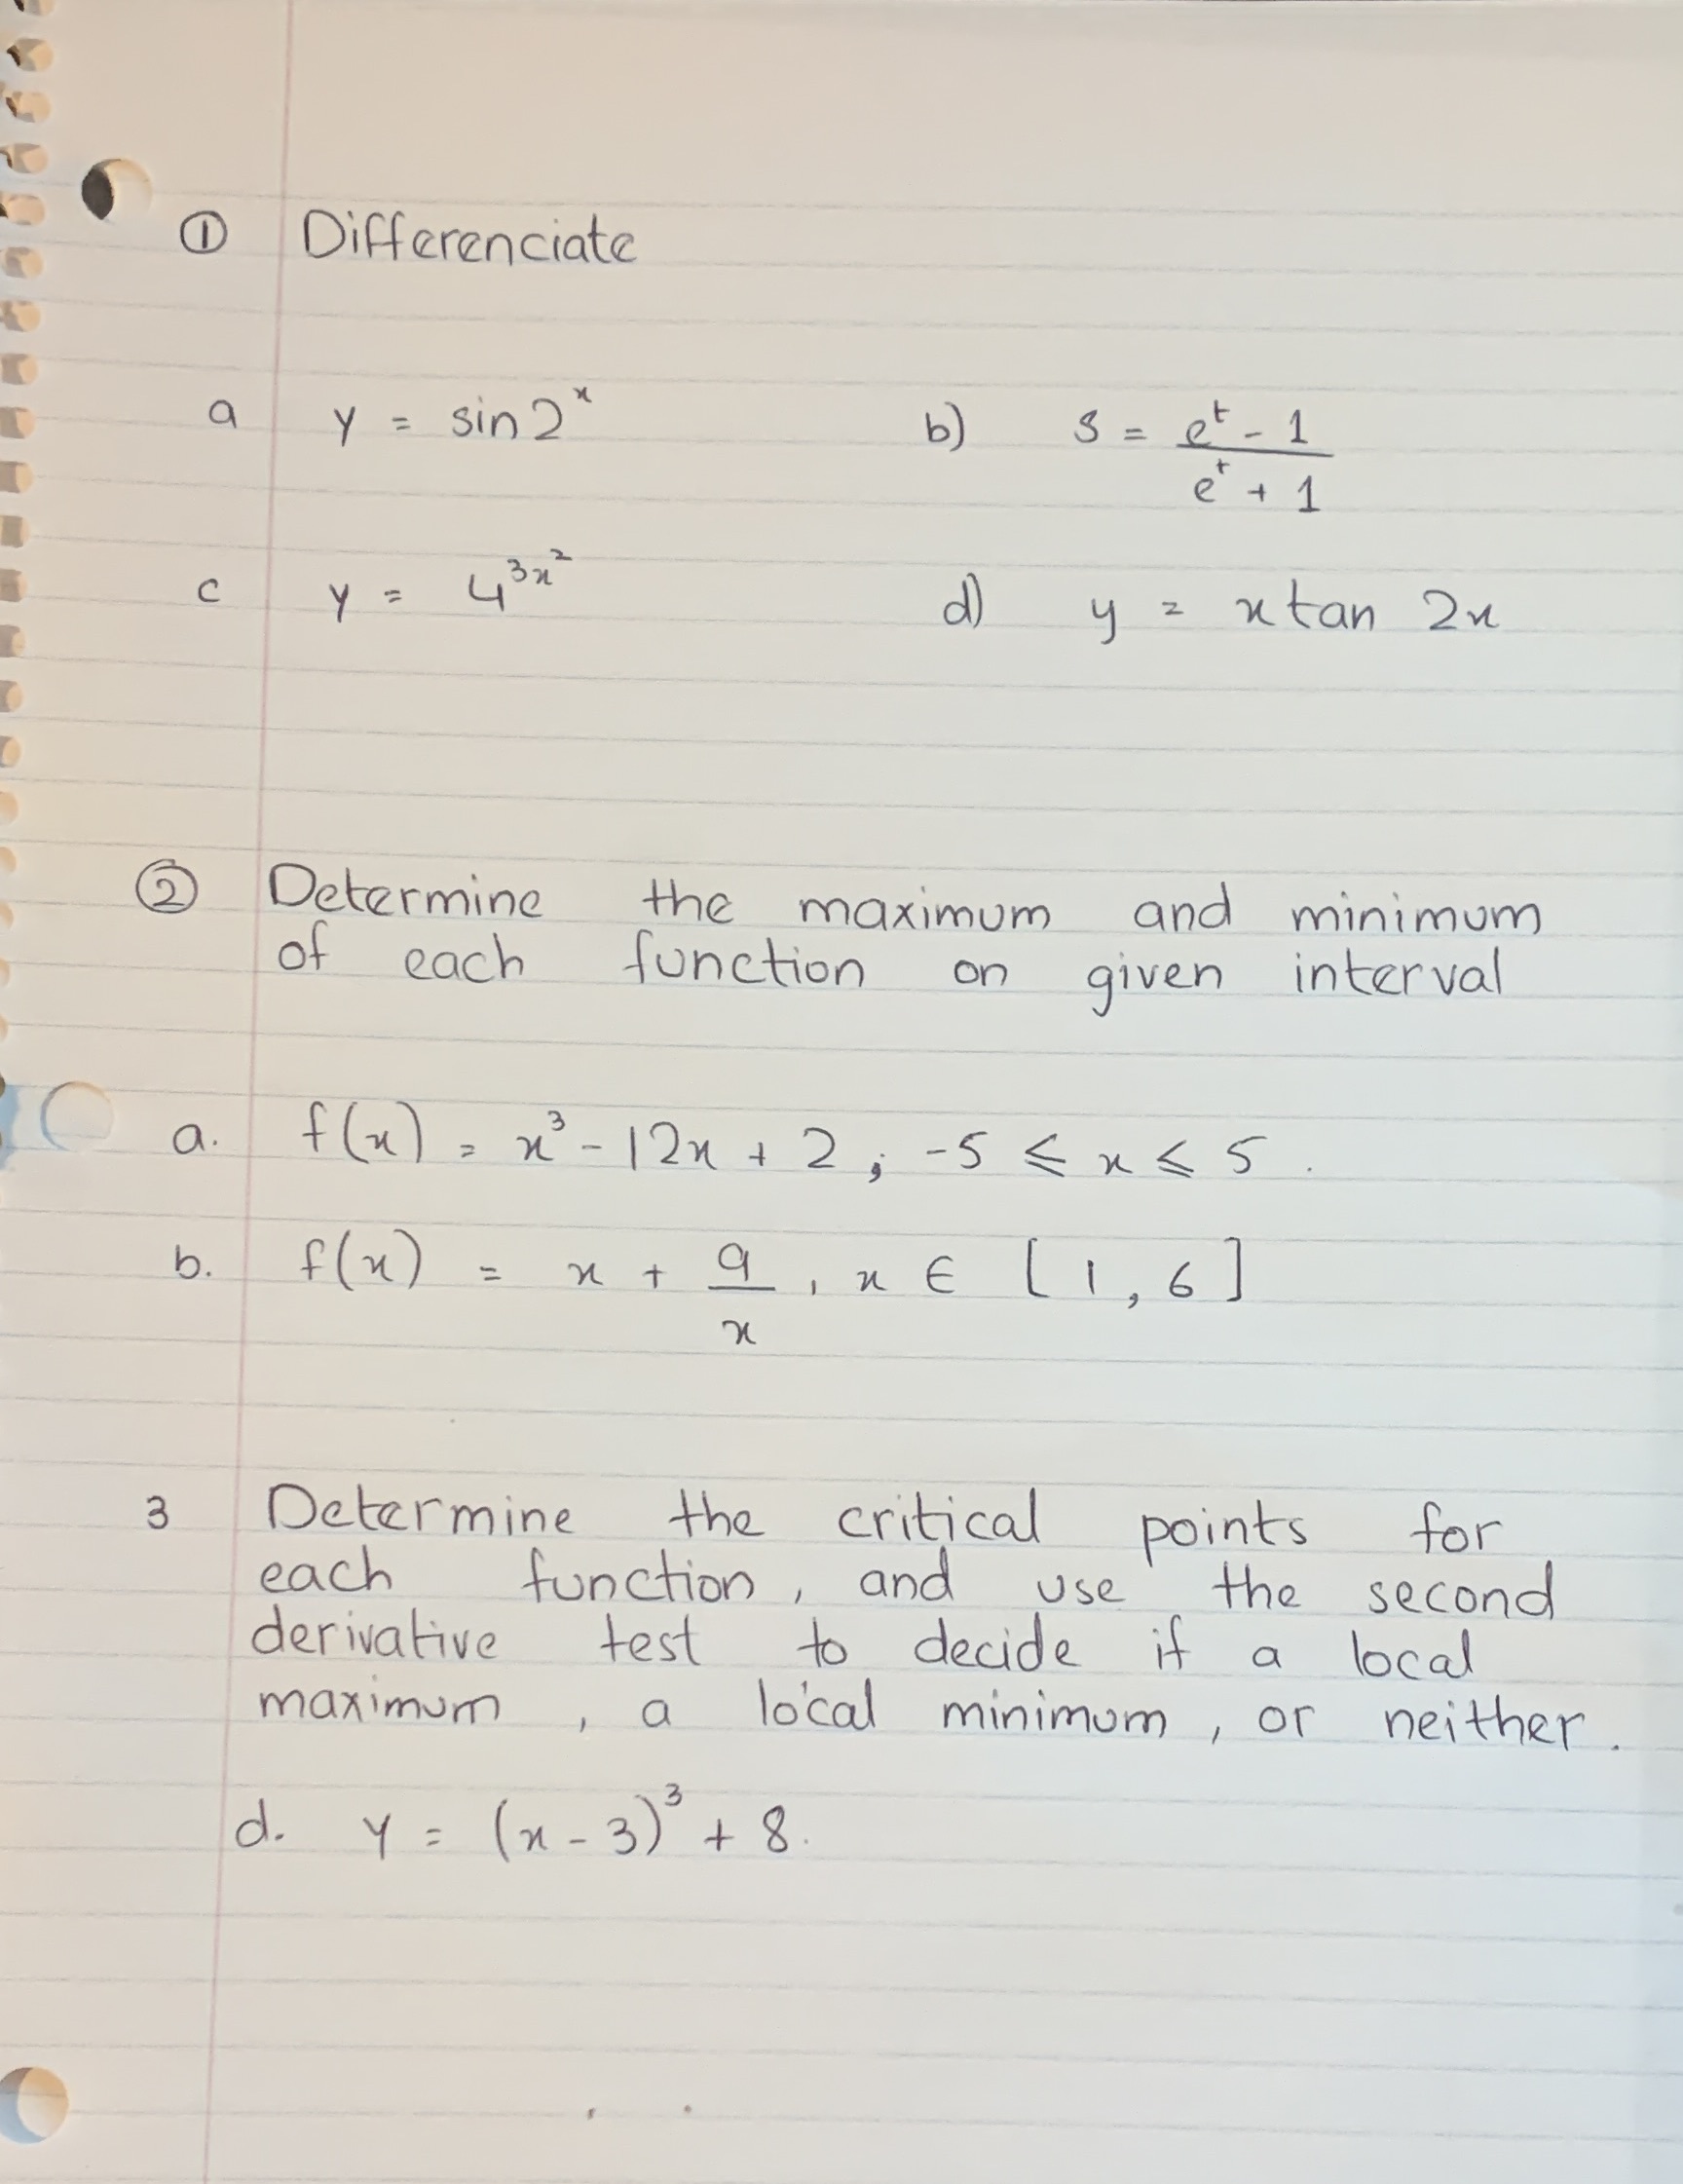 ① Differenciate
a y = sin2ˣ b) s = (eᵗ - 1)/(eᵗ + 1)
c y = 4^(3x²) d) y = x tan 2x
② Determine the maximum and minimum
of each function on given interval
a. f(x) = x³ - 12x + 2 ; -5 ⩽ x ⩽ 5 .
b. f(x) = x + 9/x , x ∈ [ 1 , 6 ]
3 Determine the critical points for
each function , and use the second
derivative test to decide if a local
maximum , a local minimum , or neither .
d. y = (x - 3)³ + 8.